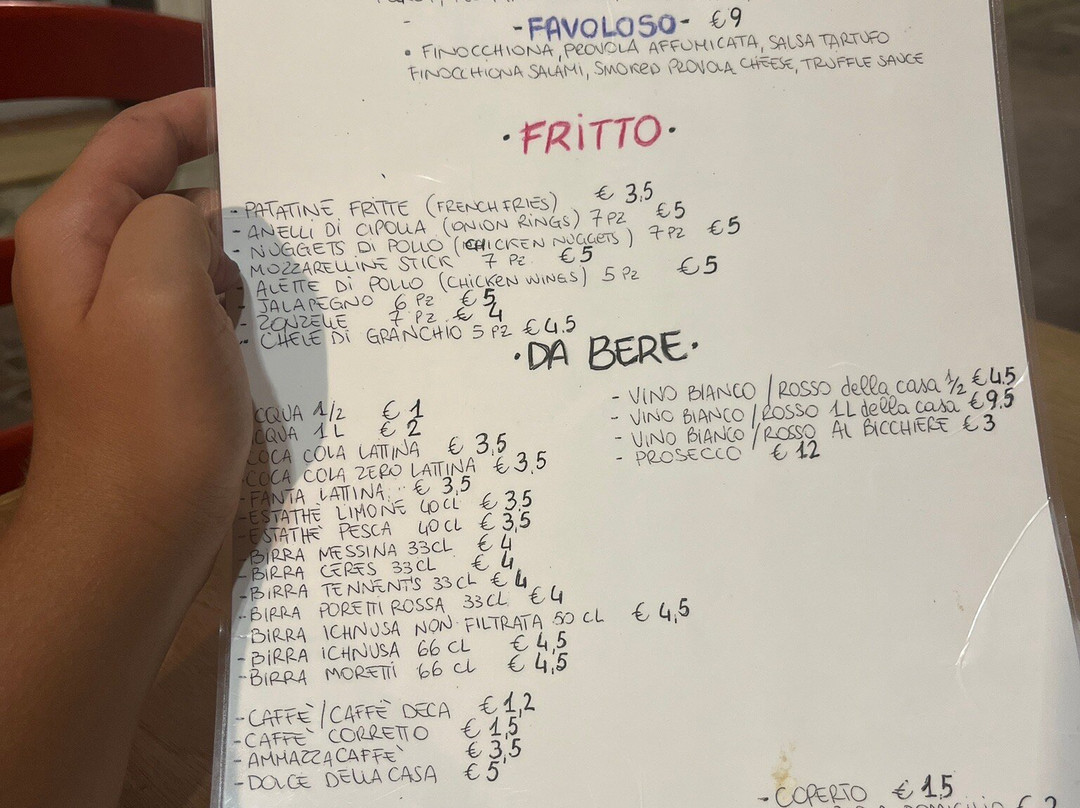 -FAVOLOSO- €9
• FINOCCHIONA, PROVOLA AFFUMICATA, SALSA TARTUFO
FINOCCHIONA SALAMI, SMOKED PROVOLA CHEESE, TRUFFLE SAUCE
• FRITTO •
- PATATINE FRITTE (FRENCH FRIES) € 3,5
- ANELLI DI CIPOLLA (ONION RINGS) 7 PZ €5
- NUGGETS DI POLLO (CHICKEN NUGGETS) 7 PZ €5
MOZZARELLINE STICK 7 PZ €5
- ALETTE DI POLLO (CHICKEN WINGS) 5 PZ €5
- JALAPEGNO 6 PZ €5
- ZONZELLE 7 PZ € 4
- CHELE DI GRANCHIO 5 PZ €4.5
• DA BERE •
CQUA 1/2 € 1
CQUA 1L € 2
COCA COLA LATTINA € 3,5
-COCA COLA ZERO LATTINA € 3,5
-FANTA LATTINA € 3,5
-ESTATHÈ LIMONE 40 CL € 3,5
-ESTATHÈ PESCA 40 CL € 3,5
-BIRRA MESSINA 33CL € 4
-BIRRA CERES 33 CL € 4
-BIRRA TENNENT'S 33 CL € 4
-BIRRA PORETTI ROSSA 33 CL €4
-BIRRA ICHNUSA NON FILTRATA 50 CL € 4,5
-BIRRA ICHNUSA 66 CL € 4,5
-BIRRA MORETTI 66 CL € 4,5
-CAFFÈ/CAFFÈ DECA € 1,2
-CAFFÈ CORRETTO € 1,5
-AMMAZZACAFFÈ € 3,5
-DOLCE DELLA CASA € 5
- VINO BIANCO / ROSSO della casa 1/2 €4.5
- VINO BIANCO / ROSSO 1L della casa €9.5
- VINO BIANCO / ROSSO AL BICCHIERE €3
- PROSECCO €12
- COPERTO € 1,5